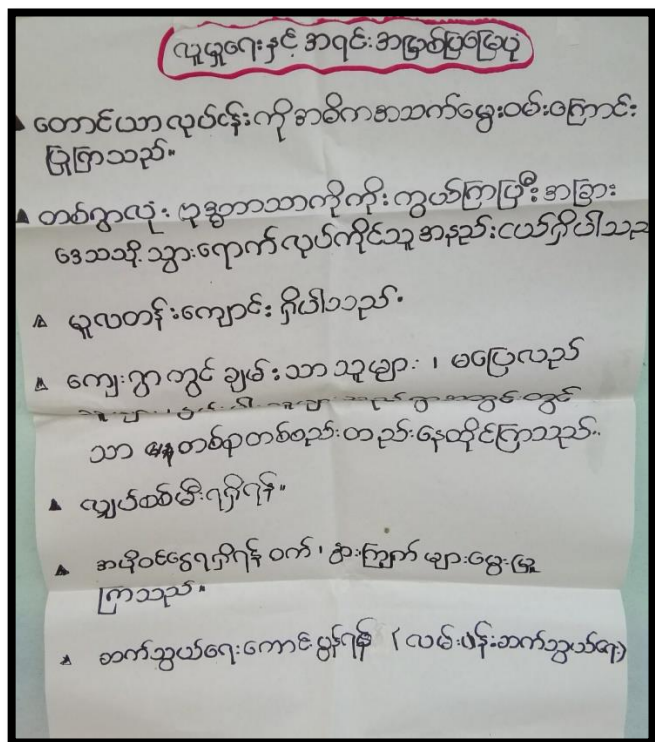 လူမှုရေးနှင့် အရင်းအမြစ်ပြမြေပုံ
▲ တောင်ယာလုပ်ငန်းကိုအဓိကအသက်မွေးဝမ်းကြောင်း
ပြုကြသည်။
▲ တစ်ရွာလုံး ဗုဒ္ဓဘာသာကိုကိုးကွယ်ကြပြီးအခြား
ဒေသသို့ သွားရောက်လုပ်ကိုင်သူအနည်းငယ်ရှိပါသည်
▲ မူလတန်းကျောင်း ရှိပါသည်။
▲ ကျေးရွာတွင် ချမ်းသာသူများ ၊ မပြေလည်
သူများ ၊ သည်ရွာအတွင်းတွင်
သာ တစ်စုတစ်စည်းတည်းနေထိုင်ကြသည်။
▲ လျှပ်စစ်မီးရရှိရန်။
▲ အပိုဝင်ငွေရရှိရန် ဝက် ၊ နွား ကြက် များမွေးမြူ
ကြသည်။
▲ ဆက်သွယ်ရေးကောင်းမွန်ရန် (လမ်းပန်းဆက်သွယ်ရေး)